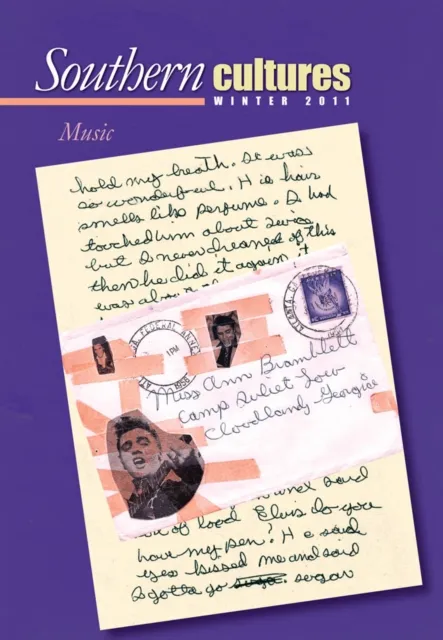 Southern cultures
WINTER 2011
Music
hold my breath. It was
so wonderful. His hair
smells like perfume. I had
touched him about twice
but I never dreamed of this
then he did it again, it
was
FEDERAL ANNEX
ATLANTA
1 PM
1956
Miss Ann Bramblett
Camp Juliet Low
Cloudland - Georgia
said
of loud Elvis do you
have my pen? He said
yes kissed me and said
I gotta go sugar